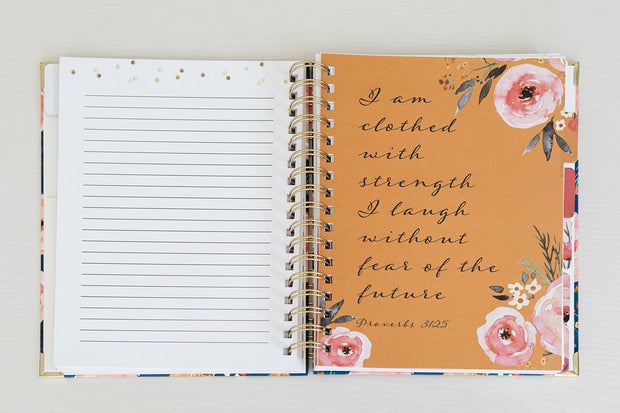 I am
clothed
with
strength
I laugh
without
fear of the
future
Proverbs 31:25